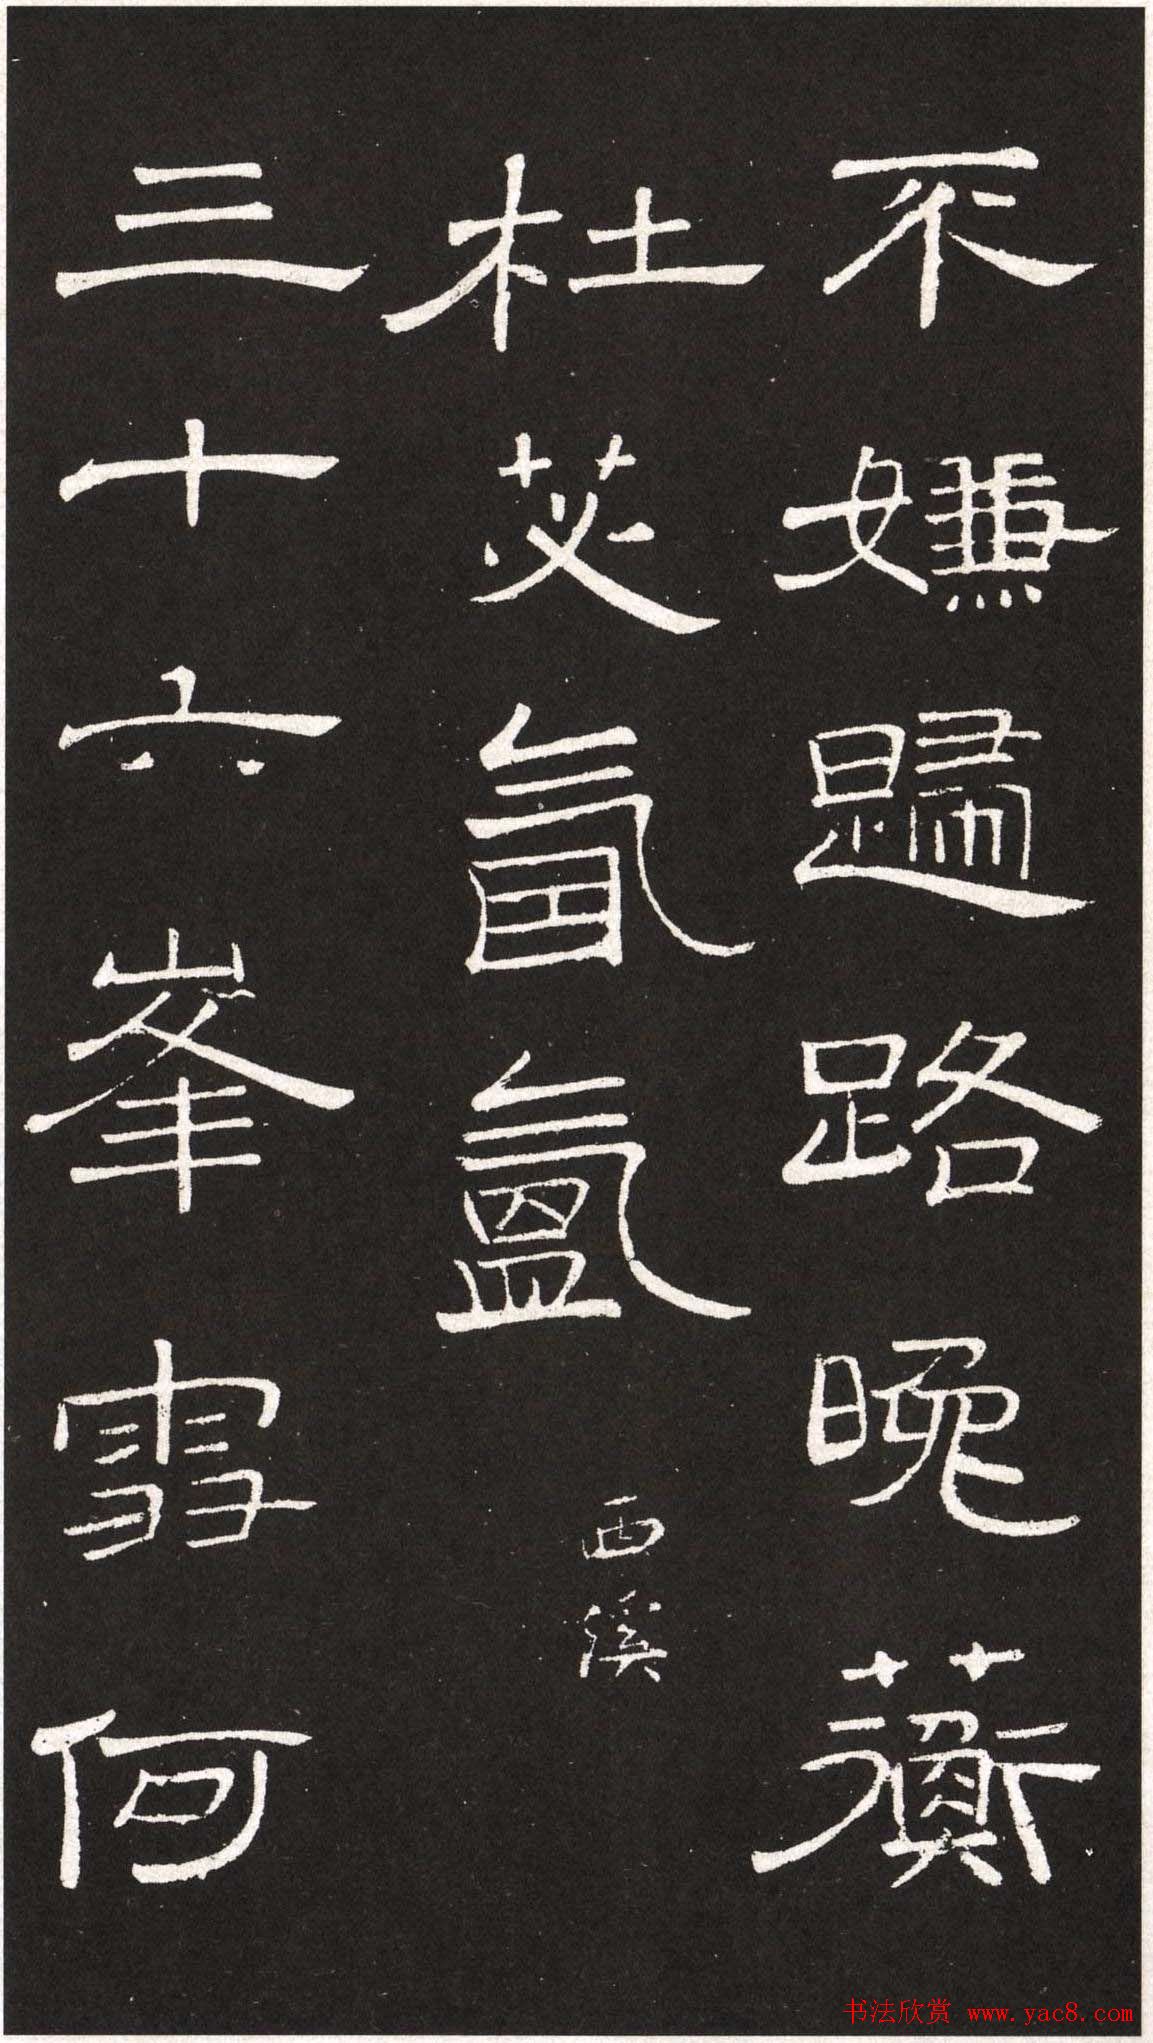 不嫌歸路晚蘅
杜苾氤氳
西溪
三十六峯雪何
书法欣赏 www.yac8.com